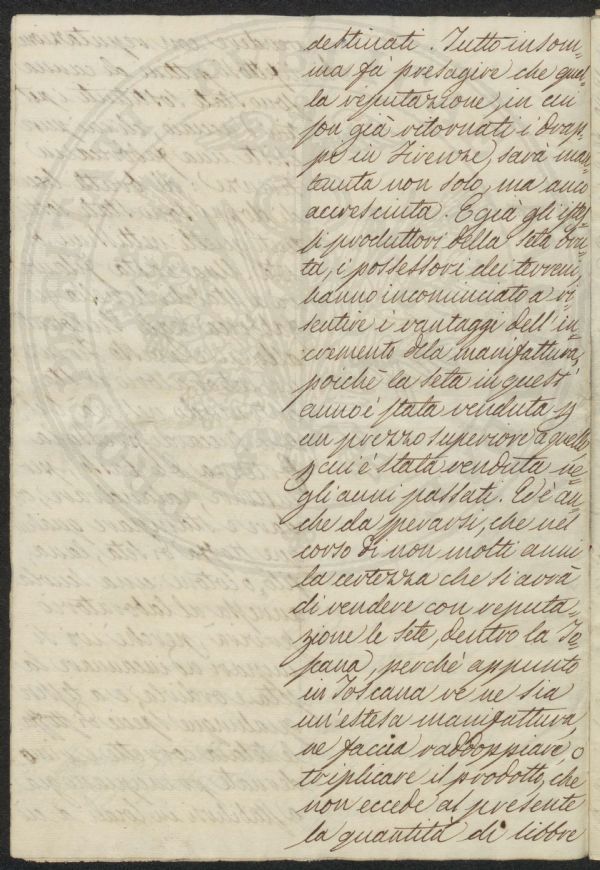 destinati. Tutto insom=
ma fà presagire che quel=
la reputazione, in cui
son già ritornati i drap=
pi in Firenze, sarà man=
tenuta non solo, ma anco
accresciuta. E già gli istes=
si produttori della seta bru=
ta, i possessori dei terreni,
hanno incominciato a ri=
sentire i vantaggi dell'in=
cremento della manifattura,
poichè la seta in quest'
anno è stata venduta p
un prezzo superiore a quello
p cui è stata venduta ne=
gli anni passati. Ed è an=
che da sperarsi, che nel
corso di non molti anni
la certezza che si avrà
di vendere con reputa=
zione le sete, dentro la To=
scana, perchè appunto
in Toscana ve ne sia
un'estesa manifattura,
ne faccia raddoppiare, o
triplicare il prodotto, che
non eccede al presente
la quantità di libbre